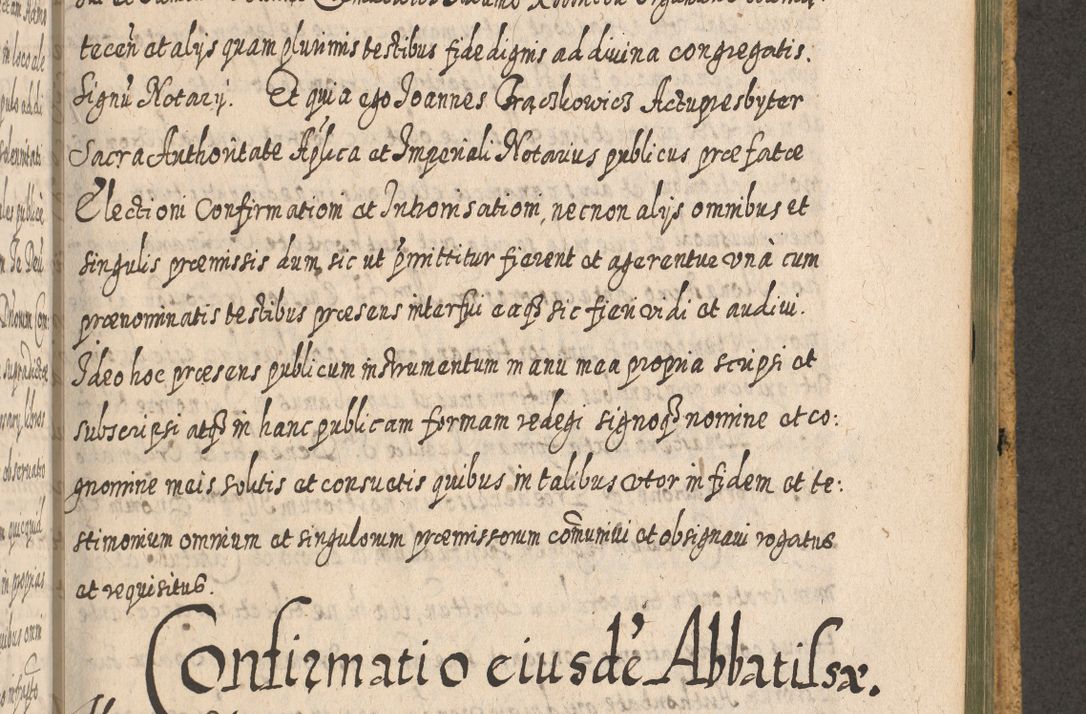 tecen̄ et alijs quam plurimis testibus fide dignis ad divina congregatis.
Signū Notarij. Et quia ego Joannes Grączkowicz Actupresbyter
Sacra Authoritate Aplica et Imperiali Notarius publicus præfatæ
Electioni Confirmationi et Inthronisationi, necnon alijs omnibus et
singulis præmissis dum, sic ut p̄mittitur fierent et agerentur unà cum
prænominatis testibus præsens interfui eaqꝫ sic fieri vidi et audivi.
Ideo hoc præsens publicum instrumentum manu mea propria scripsi et
subscripsi atqꝫ in hanc publicam formam redegi signoqꝫ nomine et co:
gnomine meis solitis et consuetis quibus in talibus utor in fidem et te:
stimonium omnium et singulorum præmissorum com̄univi et obsignavi rogatus
et requisitus.
Confirmatio eiusdē Abbatissæ.